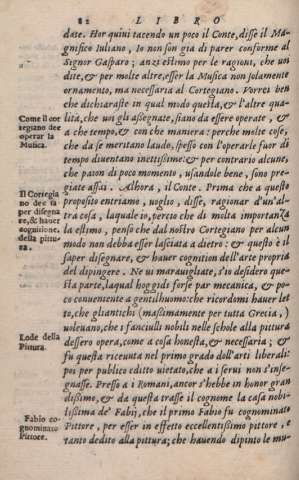 82 LIBRO
date. Hor quiui tacendo un poco il Conte, disse il Ma-
gnifico Iuliano, Io non son gia di parer conforme al
Signor Gasparo; anzi estimo per le ragioni, che uoi
dite, & per molte altre, esser la Musica non solamente
ornamento, ma necessaria al Cortegiano. Vorrei ben
che dichiaraste in qual modo questa, & l'altre qua-
lità, che uoi gli assegnate, siano da essere operate, &
Come il cor
tegiano dee
operar la
Musica.
a che tempo, & con che maniera: perche molte cose,
che da se meritano laude, spesso con l'operarle fuor di
tempo diuentano inettissime: & per contrario alcune,
che paion di poco momento, usandole bene, sono pre-
giate assai. Alhora, il Conte. Prima che a questo
Il Cortegia
no dee sa
per disegna
re, & hauer
cognitione
della pittu-
ra.
proposito entriamo, uoglio, disse, ragionar d'un'al-
tra cosa, laquale io, percio che di molta importanza
la estimo, penso che dal nostro Cortegiano per alcun
modo non debba esser lasciata a dietro: & questo è il
saper disegnare, & hauer cognition dell'arte propria
del dipingere. Ne ui marauigliate, s'io desidero que-
sta parte, laqual hoggidì forse par mecanica, & po-
co conueniente a gentilhuomo: che ricordomi hauer let
to, che gliantichi (massimamente per tutta Grecia,)
uoleuano, che i fanciulli nobili nelle schole alla pittura
Lode della
Pittura.
dessero opera, come a cosa honesta, & necessaria; &
fu questa riceuuta nel primo grado dell'arti liberali:
poi per publico editto uietato, che a i serui non s'inse-
gnasse. Presso a i Romani, ancor s'hebbe in honor gran
dissimo, & da questa trasse il cognome la casa nobi-
lissima de' Fabij, che il primo Fabio fu cognominato
Fabio co-
gnominato
Pittore.
Pittore, per esser in effetto eccellentissimo pittore, e
tanto dedito alla pittura; che hauendo dipinto le mu-